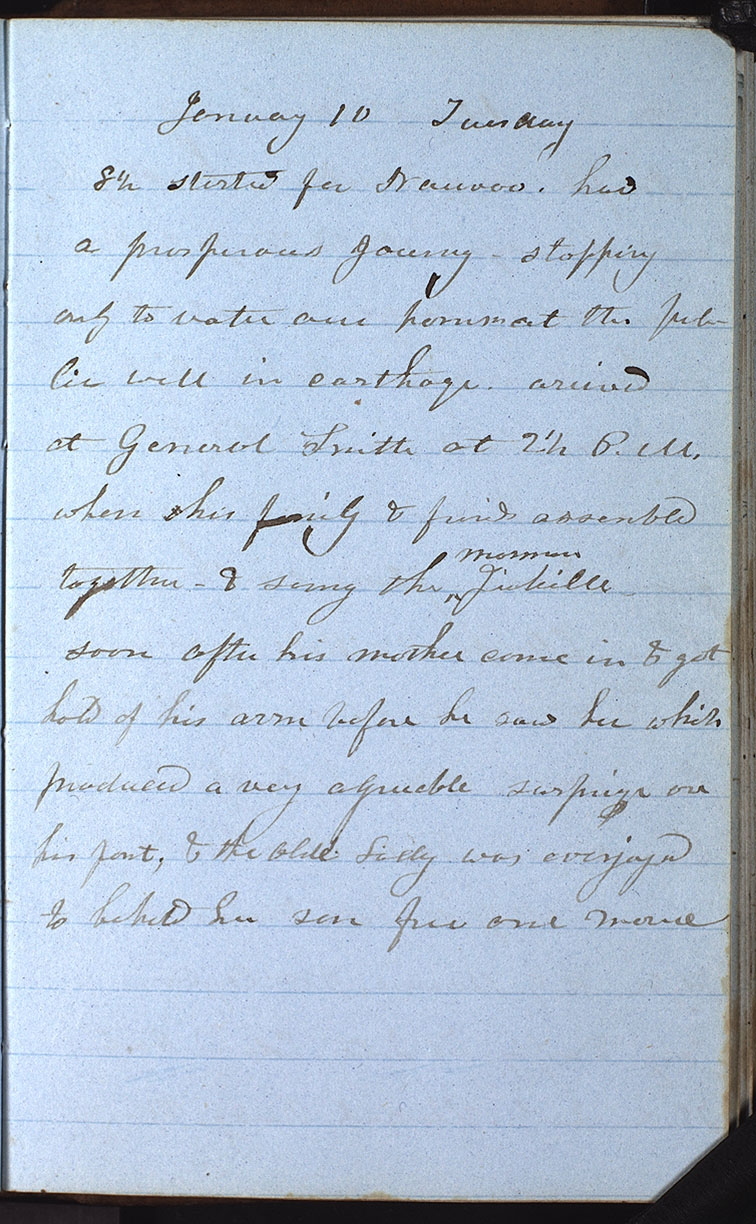 January 10 Tuesday
8½ started for Nauvoo. had
a prosperous Journy - stopping
only to water our horses at the pub-
lic well in carthage. arrived
at General Smiths at 2½ P.M.
when his family & friends assembled
together - & sung the mormon Jubilee
soon after his mother come in & got
hold of his arm before he saw her which
produced a very agreeable surprize on
his part, & the old Lady was overjoyed
to behold her son free once more